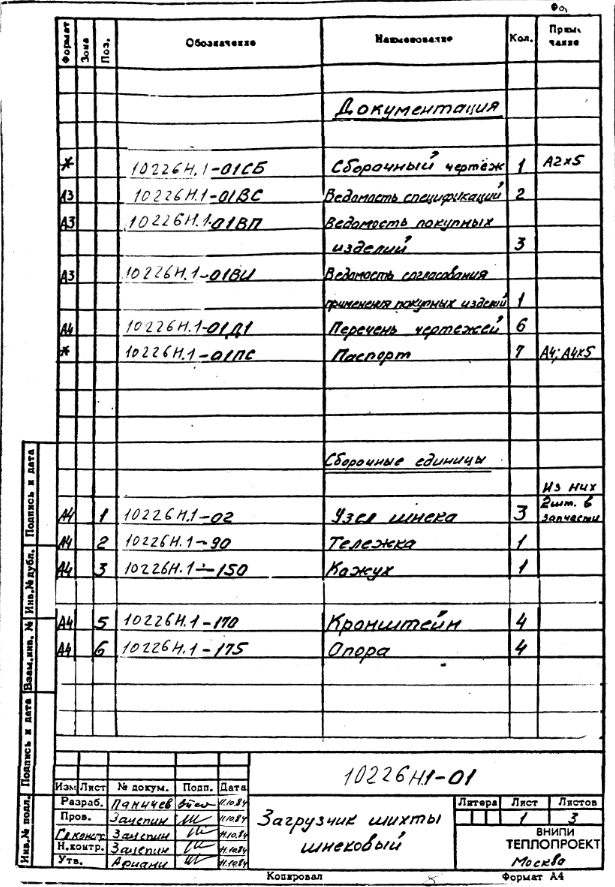 Фо
Формат Зона Поз. Обозначение Наименование Кол. Приме-
чание
Документация
* 10226Н.1-01СБ Сборочный чертёж 1 А2х5
А3 10226Н.1-01ВС Ведомость спецификаций 2
А3 10226Н.1-01ВП Ведомость покупных
изделий 3
А3 10226Н.1-01ВИ Ведомость согласования
применения покупных изделий 1
А4 10226Н.1-01Д1 Перечень чертежей 6
* 10226Н.1-01ПС Паспорт 7 А4; А4х5
Сборочные единицы
Из них
А4 1 10226Н.1-02 Узел шнека 3 2шт. в
запчасти
А4 2 10226Н.1-90 Тележка 1
А4 3 10226Н.1-150 Кожух 1
А4 5 10226Н.1-170 Кронштейн 4
А4 6 10226Н.1-175 Опора 4
Подпись и дата
Инв.№ дубл.
Взам.инв. №
Подпись и дата
Инв.№ подл.
10226Н1-01
Изм Лист № докум. Подп. Дата
Разраб. Паничев 11.10.84
Пров. Зачепин 11.10.84
Гл.констр. Зачепин 11.10.84
Н.контр. Зачепин 11.10.84
Утв. Ариани 11.10.84
Загрузчик шихты
шнековый
Литера Лист Листов
1 3
ВНИПИ
ТЕПЛОПРОЕКТ
Москва
Копировал Формат А4